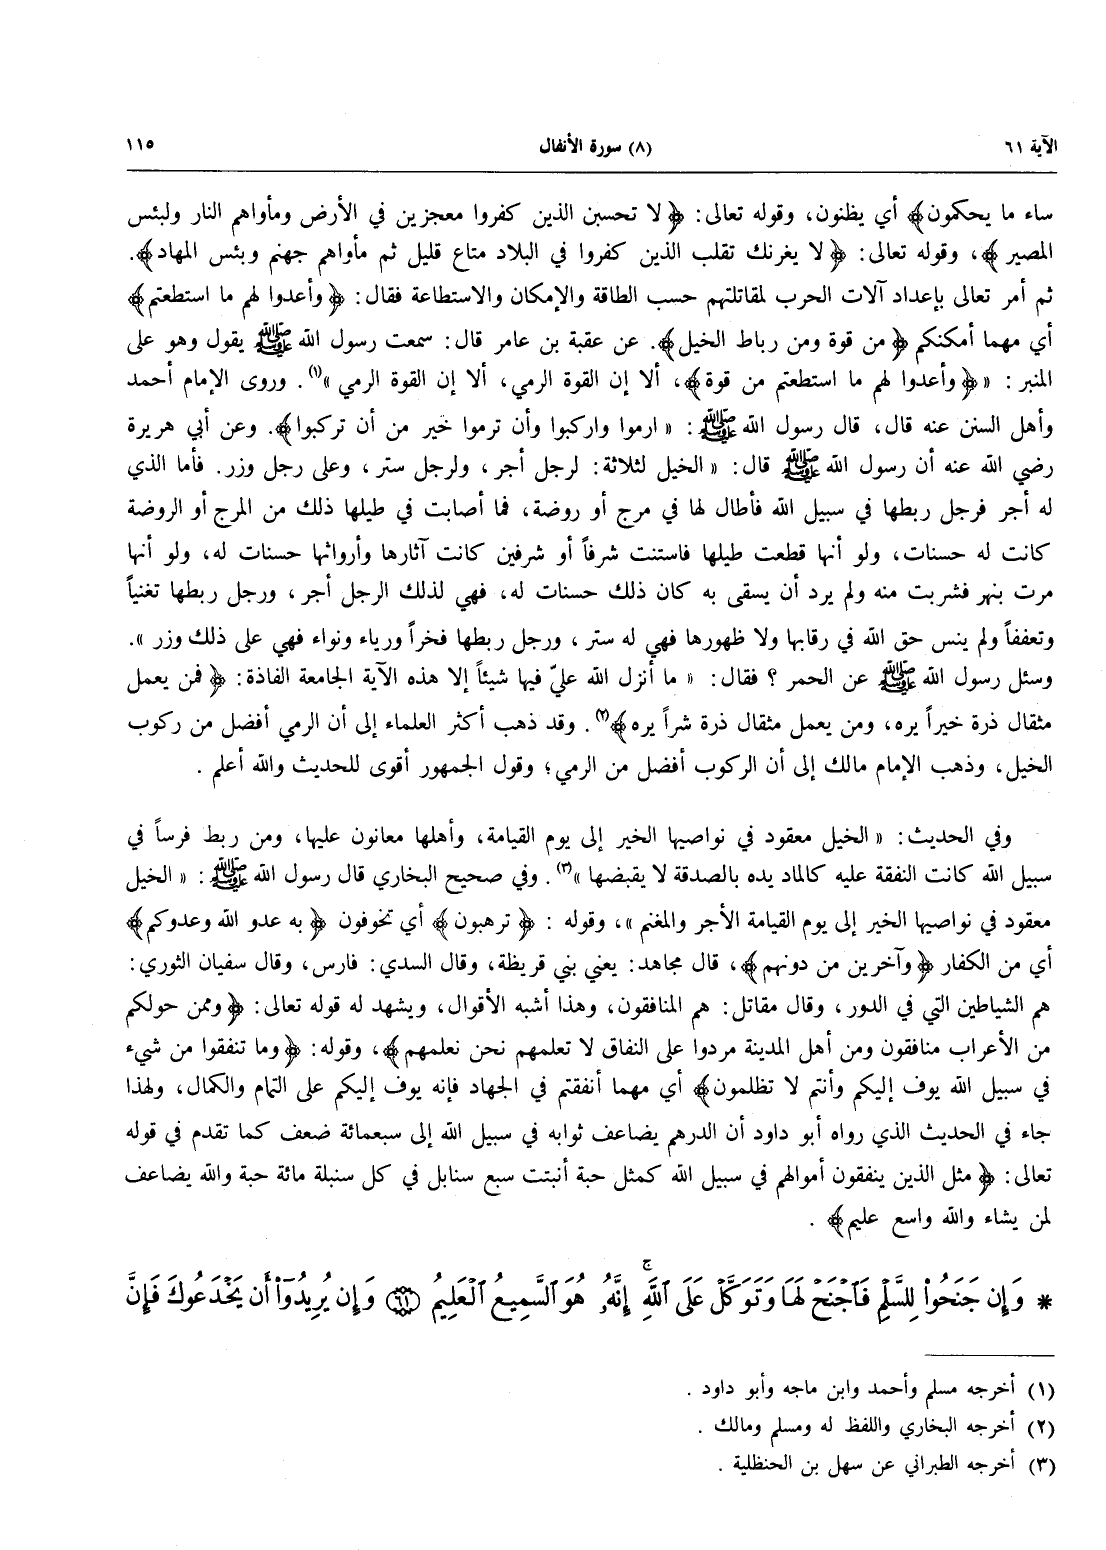 الآية ٦١
(٨) سورة الأنفال
١١٥
ساء ما يحكمون﴾ أي يظنون، وقوله تعالى: ﴿لا تحسبن الذين كفروا معجزين في الأرض ومأواهم النار ولبئس
المصير﴾، وقوله تعالى: ﴿لا يغرنك تقلب الذين كفروا في البلاد متاع قليل ثم مأواهم جهنم وبئس المهاد﴾.
ثم أمر تعالى بإعداد آلات الحرب لمقاتلتهم حسب الطاقة والإمكان والاستطاعة فقال: ﴿وأعدوا لهم ما استطعتم﴾
أي مهما أمكنكم ﴿من قوة ومن رباط الخيل﴾. عن عقبة بن عامر قال: سمعت رسول الله ﷺ يقول وهو على
المنبر: «﴿وأعدوا لهم ما استطعتم من قوة﴾، ألا إن القوة الرمي، ألا إن القوة الرمي»(١). وروى الإمام أحمد
وأهل السنن عنه قال، قال رسول الله ﷺ: «ارموا واركبوا وأن ترموا خير من أن تركبوا﴾. وعن أبي هريرة
رضي الله عنه أن رسول الله ﷺ قال: «الخيل لثلاثة: لرجل أجر، ولرجل ستر، وعلى رجل وزر. فأما الذي
له أجر فرجل ربطها في سبيل الله فأطال لها في مرج أو روضة، فما أصابت في طيلها ذلك من المرج أو الروضة
كانت له حسنات، ولو أنها قطعت طيلها فاستنت شرفاً أو شرفين كانت آثارها وأرواثها حسنات له، ولو أنها
مرت بنهر فشربت منه ولم يرد أن يسقى به كان ذلك حسنات له، فهي لذلك الرجل أجر، ورجل ربطها تغنياً
وتعففاً ولم ينس حق الله في رقابها ولا ظهورها فهي له ستر، ورجل ربطها فخراً ورياء ونواء فهي على ذلك وزر».
وسئل رسول الله ﷺ عن الحمر؟ فقال: «ما أنزل الله عليّ فيها شيئاً إلا هذه الآية الجامعة الفاذة: ﴿فمن يعمل
مثقال ذرة خيراً يره، ومن يعمل مثقال ذرة شراً يره﴾(٢). وقد ذهب أكثر العلماء إلى أن الرمي أفضل من ركوب
الخيل، وذهب الإمام مالك إلى أن الركوب أفضل من الرمي؛ وقول الجمهور أقوى للحديث والله أعلم.
وفي الحديث: «الخيل معقود في نواصيها الخير إلى يوم القيامة، وأهلها معانون عليها، ومن ربط فرساً في
سبيل الله كانت النفقة عليه كالماد يده بالصدقة لا يقبضها»(٣). وفي صحيح البخاري قال رسول الله ﷺ: «الخيل
معقود في نواصيها الخير إلى يوم القيامة الأجر والمغنم»، وقوله: ﴿ترهبون﴾ أي تخوفون ﴿به عدو الله وعدوكم﴾
أي من الكفار ﴿وآخرين من دونهم﴾، قال مجاهد: يعني بني قريظة، وقال السدي: فارس، وقال سفيان الثوري:
هم الشياطين التي في الدور، وقال مقاتل: هم المنافقون، وهذا أشبه الأقوال، ويشهد له قوله تعالى: ﴿وممن حولكم
من الأعراب منافقون ومن أهل المدينة مردوا على النفاق لا تعلمهم نحن نعلمهم﴾، وقوله: ﴿وما تنفقوا من شيء
في سبيل الله يوف إليكم وأنتم لا تظلمون﴾ أي مهما أنفقتم في الجهاد فإنه يوف إليكم على التمام والكمال، ولهذا
جاء في الحديث الذي رواه أبو داود أن الدرهم يضاعف ثوابه في سبيل الله إلى سبعمائة ضعف كما تقدم في قوله
تعالى: ﴿مثل الذين ينفقون أموالهم في سبيل الله كمثل حبة أنبتت سبع سنابل في كل سنبلة مائة حبة والله يضاعف
لمن يشاء والله واسع عليم﴾.
* وَإِن جَنَحُواْ لِلسَّلْمِ فَٱجْنَحْ لَهَا وَتَوَكَّلْ عَلَى ٱللَّهِ ۚ إِنَّهُۥ هُوَ ٱلسَّمِيعُ ٱلْعَلِيمُ ﴿٦١﴾ وَإِن يُرِيدُوٓاْ أَن يَخْدَعُوكَ فَإِنَّ
(١) أخرجه مسلم وأحمد وابن ماجه وأبو داود.
(٢) أخرجه البخاري واللفظ له ومسلم ومالك.
(٣) أخرجه الطبراني عن سهل بن الحنظلية.